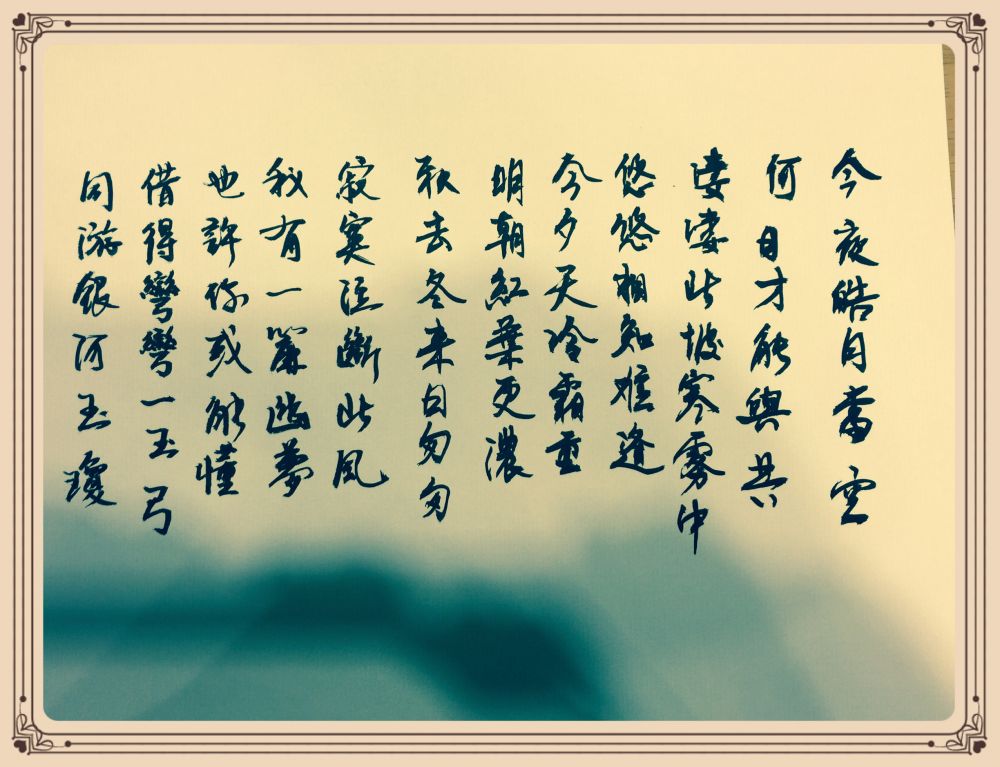 今夜皓月當空
何日才能與共
淒淒此坡寒霧中
悠悠相知難逢
今夕天冷霜重
明朝紅葉更濃
秋去冬来日匆匆
寂寞泣斷此風
我有一簾幽夢
也許你或能懂
借得彎彎一玉弓
同游銀河玉瓊